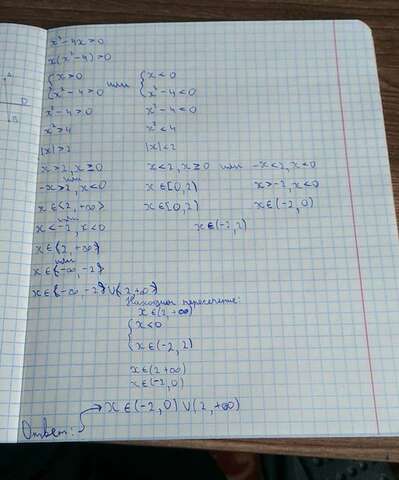 x³-4x>0
x(x²-4)>0
{x>0 или {x<0
{x²-4>0 {x²-4<0
x²-4>0 x²-4<0
x²>4 x²<4
|x|>2 |x|<2
x>2, x≥0 x<2, x≥0 или -x<2, x<0
или
-x>2, x<0 x∈[0,2) x>-2, x<0
x∈(2,+∞) x∈[0,2) x∈(-2,0)
или
x<-2, x<0 x∈(-2,2)
x∈(2,+∞)
или
x∈(-∞,-2)
x∈(-∞,-2)∪(2,+∞)
Находим пересечение:
x∈(2,+∞)
{x<0
{x∈(-2,2)
x∈(2+∞)
x∈(-2,0)
Ответ: x∈(-2,0)∪(2,+∞)